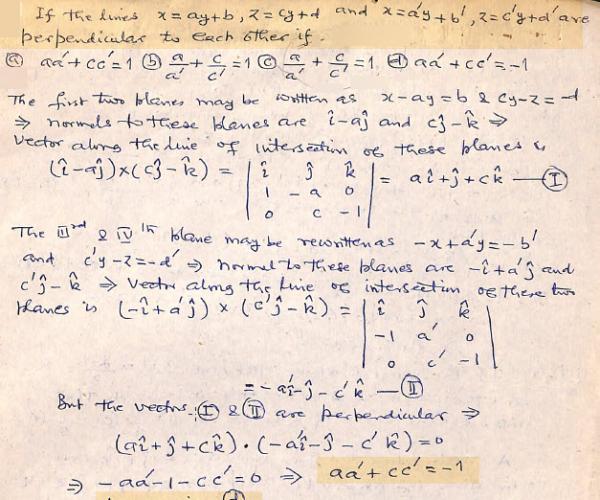 If the lines x = ay+b, z = cy+d and x = a'y+b', z = c'y+d' are
perpendicular to each other if.
(a) aa'+cc'=1 (b) a/a' + c/c' =1 (c) a/a' + c/c' =1. (d) aa'+cc'=-1
The first two planes may be written as x-ay=b & cy-z=-d
⇒ normals to these planes are î-aĵ and cĵ-k̂ ⇒
Vector along the line of intersection of these planes is
(î-aĵ)×(cĵ-k̂) = | î ĵ k̂ | = aî+ĵ+ck̂ — (I)
1 -a 0
0 c -1
The IIIrd & IVth plane may be rewritten as -x+a'y=-b'
and c'y-z=-d' ⇒ normal to these planes are -î+a'ĵ and
c'ĵ-k̂ ⇒ Vector along the line of intersection of these two
planes is (-î+a'ĵ) × (c'ĵ-k̂) = | î ĵ k̂ |
-1 a' 0
0 c' -1
= -a'î-ĵ-c'k̂ — (II)
But the vectors (I) & (II) are perpendicular ⇒
(aî+ĵ+ck̂)·(-a'î-ĵ-c'k̂)=0
⇒ -aa'-1-cc'=0 ⇒ aa'+cc'=-1
(d)